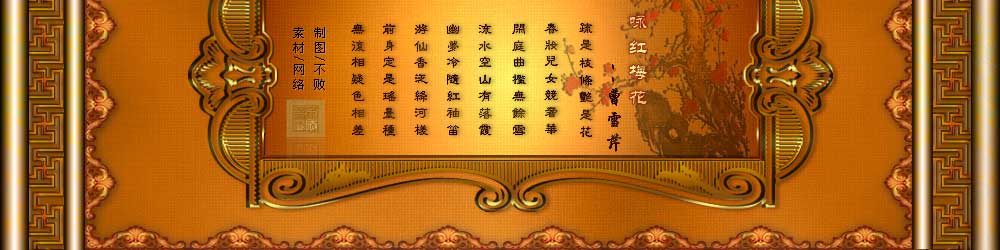 咏红梅花
、曹雪芹
疏是枝條艷是花
春妝兒女競奢華
閒庭曲檻無餘雪
流水空山有落霞
幽夢冷隨紅袖笛
游仙香泛絳河槎
前身定是瑤臺種
無復相疑色相差
制图/不败
素材/网络